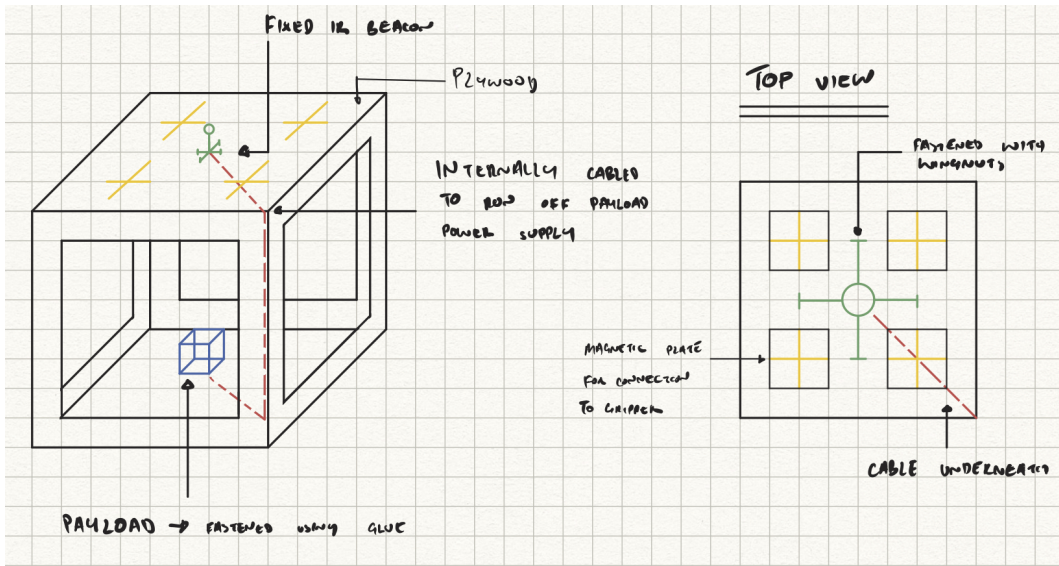 FIXED IR BEACON
PLYWOOD
INTERNALLY CABLED
TO RUN OFF PAYLOAD
POWER SUPPLY
PAYLOAD → FASTENED USING GLUE
TOP VIEW
FASTENED WITH
WINGNUTS
MAGNETIC PLATE
FOR CONNECTION
TO GRIPPER
CABLE UNDERNEATH